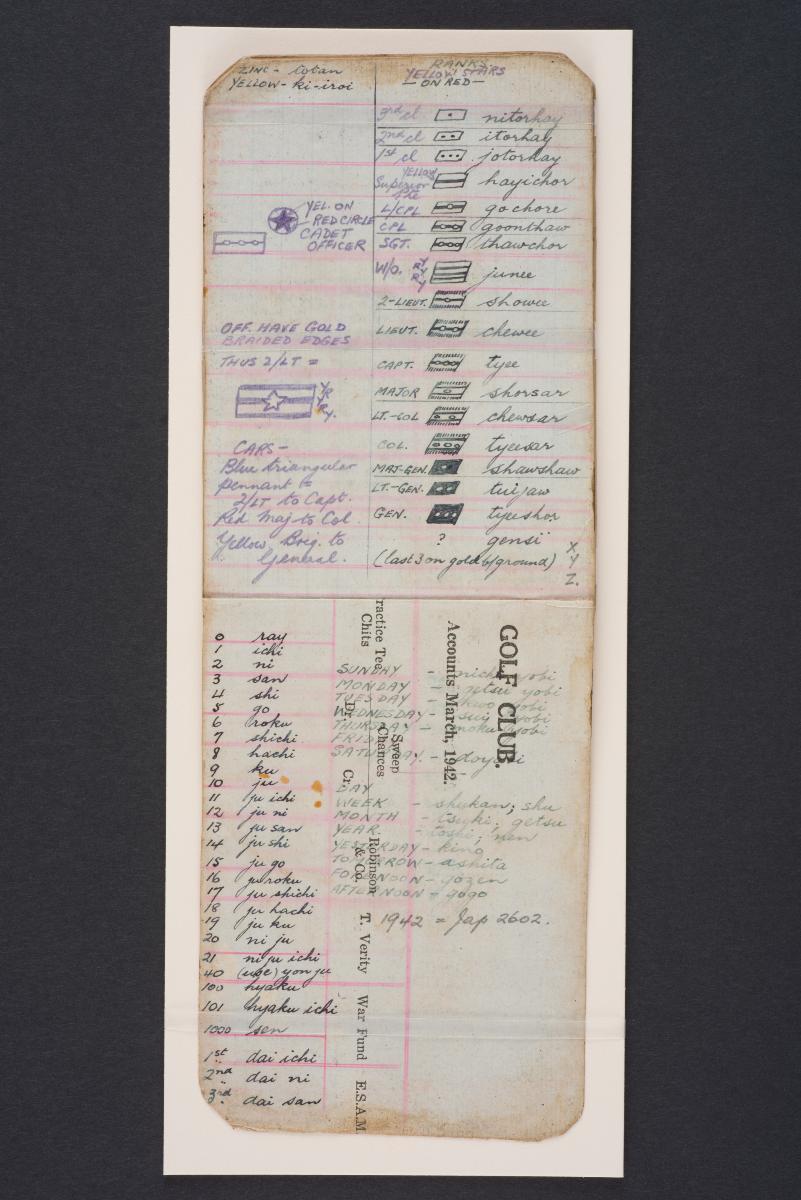 ZINC - totan
YELLOW - ki-iroi
YEL. ON
RED CIRCLE
CADET
OFFICER
OFF. HAVE GOLD
BRAIDED EDGES
THUS 2/LT =
Y
R
Y
R
Y.
CARS -
Blue triangular
pennant =
2/LT to Capt.
Red Maj to Col.
Yellow, Brig. to
General.
RANKS
YELLOW STARS
- ON RED -
3rd cl nitorhay
2nd cl itorhay
1st cl jotorhay
YELLOW
Superior Pte hayichor
L/CPL gochore
CPL goonthaw
SGT. thawchor
W/O. junee
2-LIEUT. showee
LIEUT. chewee
CAPT. tyee
MAJOR shorsar
LT.-COL chewsar
COL. tyeesar
MAJ-GEN. shawshaw
LT.-GEN. tuijaw
GEN. tyeeshor
? gensi
(last 3 on gold b/ground)
X
Y
Z.
0 ray
1 ichi
2 ni
3 san
4 shi
5 go
6 roku
7 shichi
8 hachi
9 ku
10 ju
11 ju ichi
12 ju ni
13 ju san
14 ju shi
15 ju go
16 ju roku
17 ju shichi
18 ju hachi
19 ju ku
20 ni ju
21 ni ju ichi
40 (use) yon ju
100 hyaku
101 hyaku ichi
1000 sen
1st dai ichi
2nd dai ni
3rd dai san
SUNDAY - nichi yobi
MONDAY - getsu yobi
TUESDAY - kwa yobi
WEDNESDAY - sui yobi
THURSDAY - moku yobi
FRIDAY
SATURDAY - doyobi
DAY -
WEEK - shukan; shu
MONTH - tsuki; getsu
YEAR - toshi; nen
YESTERDAY - kino
TOMORROW - ashita
FORENOON - gozen
AFTERNOON = gogo
1942 = Jap 2602.
GOLF CLUB.
Accounts March, 1942.
ractice Tee
Chits
Sweep
Chances
Dr. Cr.
Robinson
& Co.
T. Verity
War Fund
E.S.A.M.